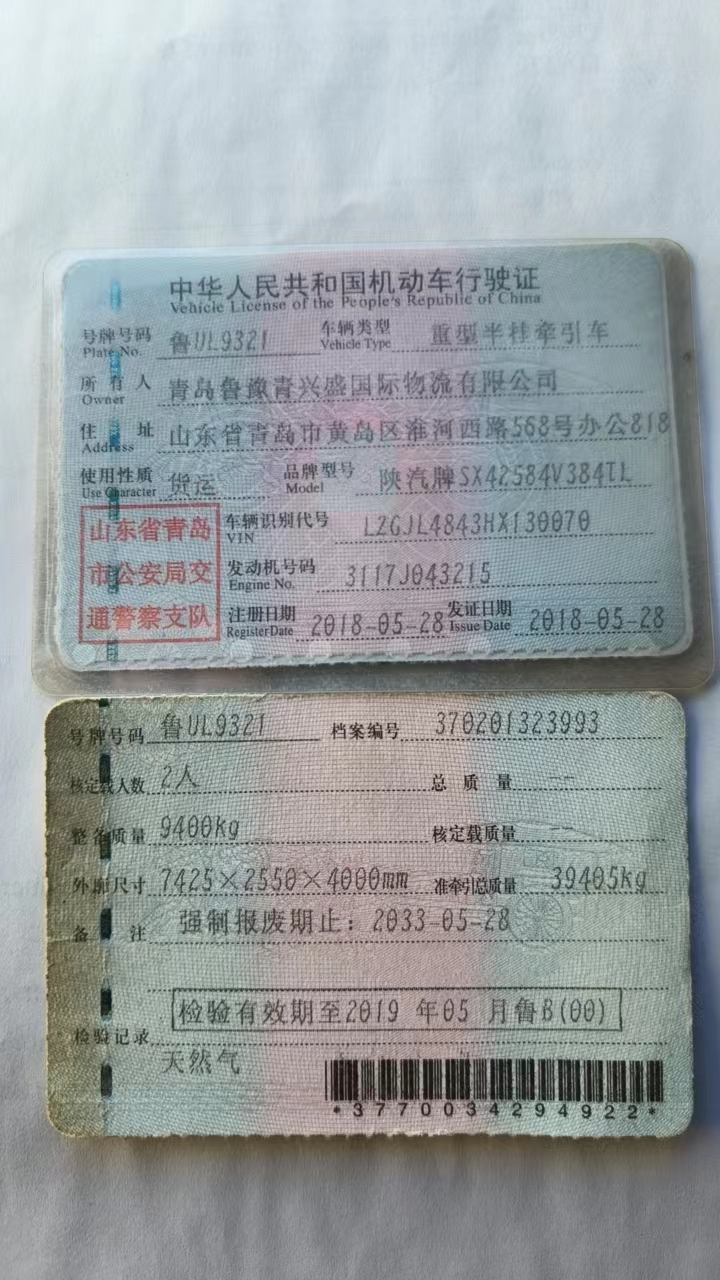 中华人民共和国机动车行驶证
Vehicle License of the People's Republic of China
号牌号码 鲁UL9321 车辆类型 重型半挂牵引车
Plate No. Vehicle Type
所有人 青岛鲁豫青兴盛国际物流有限公司
Owner
住址 山东省青岛市黄岛区淮河西路568号办公818
Address
使用性质 货运 品牌型号 陕汽牌SX42584V384TL
Use Character Model
山东省青岛
市公安局交
通警察支队
车辆识别代号 LZGJL4843HX130070
VIN
发动机号码 3117J043215
Engine No.
注册日期 2018-05-28 发证日期 2018-05-28
Register Date Issue Date
号牌号码 鲁UL9321 档案编号 370201323993
核定载人数 2人 总质量 --
整备质量 9400kg 核定载质量 --
外廓尺寸 7425×2550×4000mm 准牵引总质量 39405kg
备注 强制报废期止：2033-05-28
检验有效期至2019 年05 月鲁B(00)
检验记录
天然气
*3770034294922*